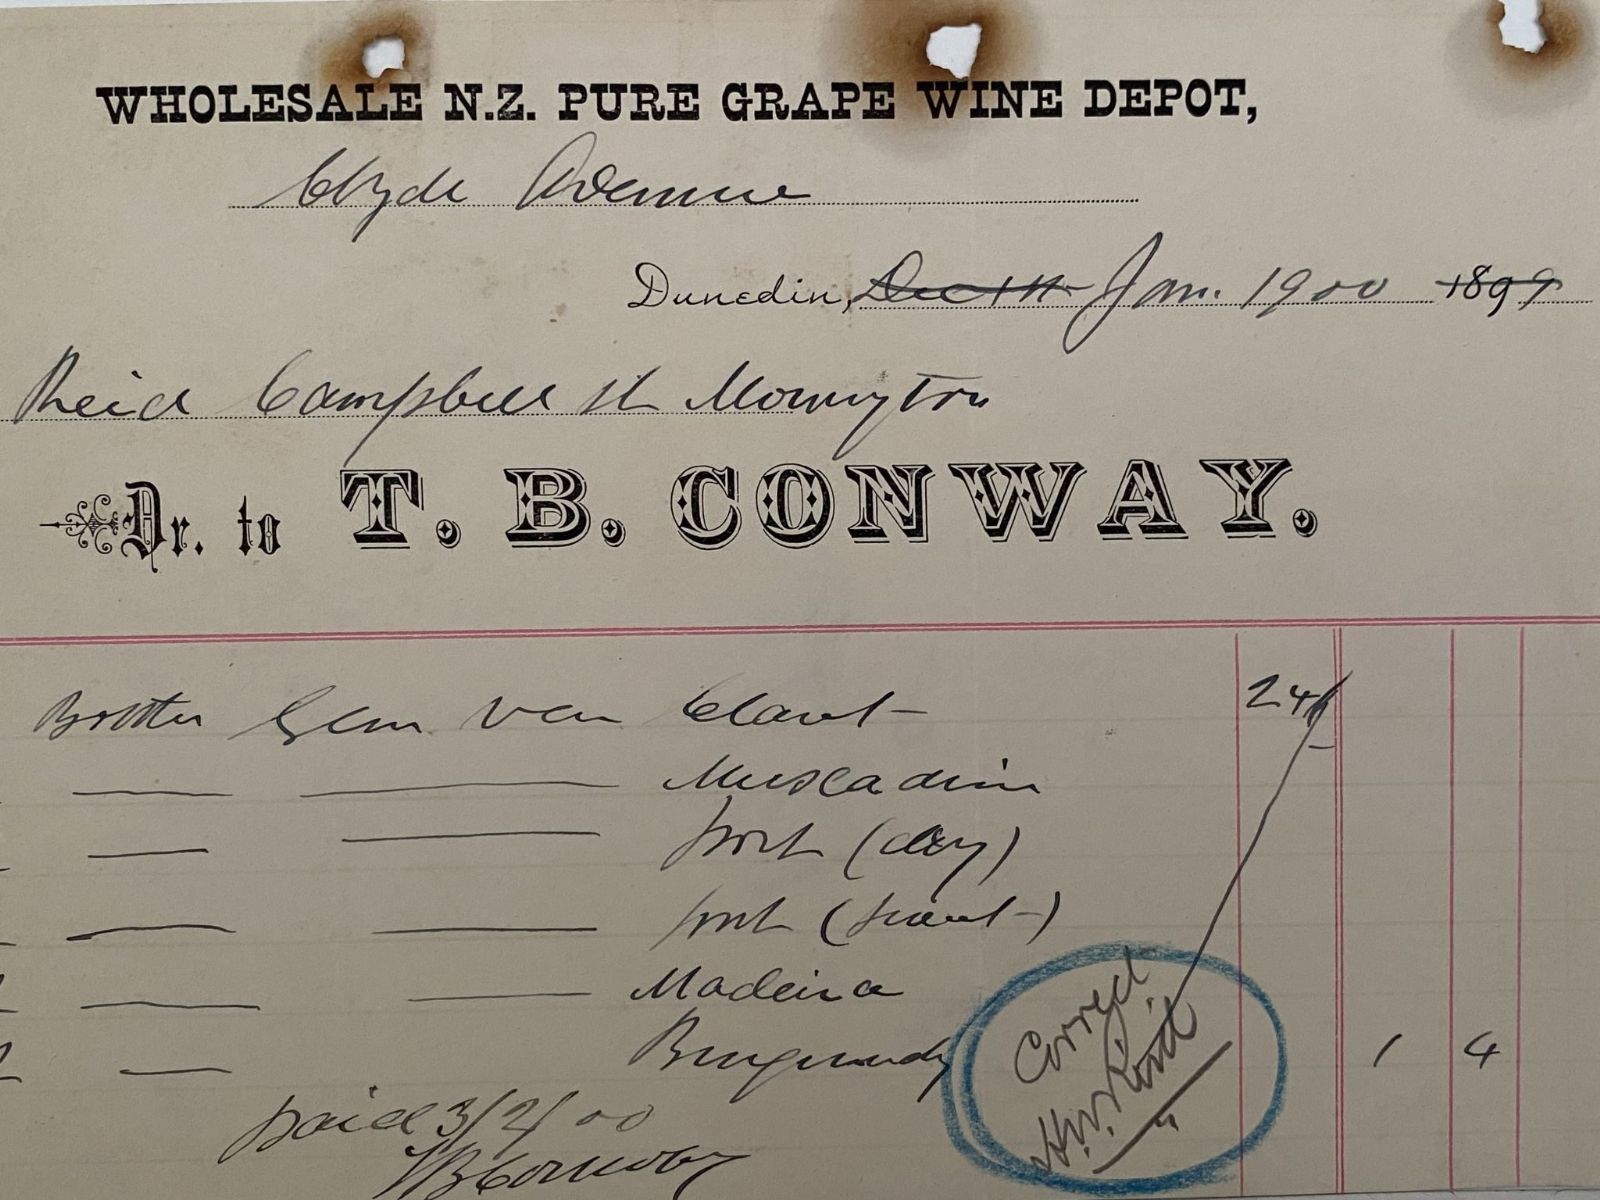 WHOLESALE N.Z. PURE GRAPE WINE DEPOT,
Clyde Avenue
Dunedin, Dec 1st Jan. 1900 1899
Reid Campbell St Mornington
Dr. to T. B. CONWAY.
Claret 24/-
Muscadine
Port (dry)
Port (sweet)
Madeira
Burgundy 1 4
Correct
paid 3/2/00
TB Conway